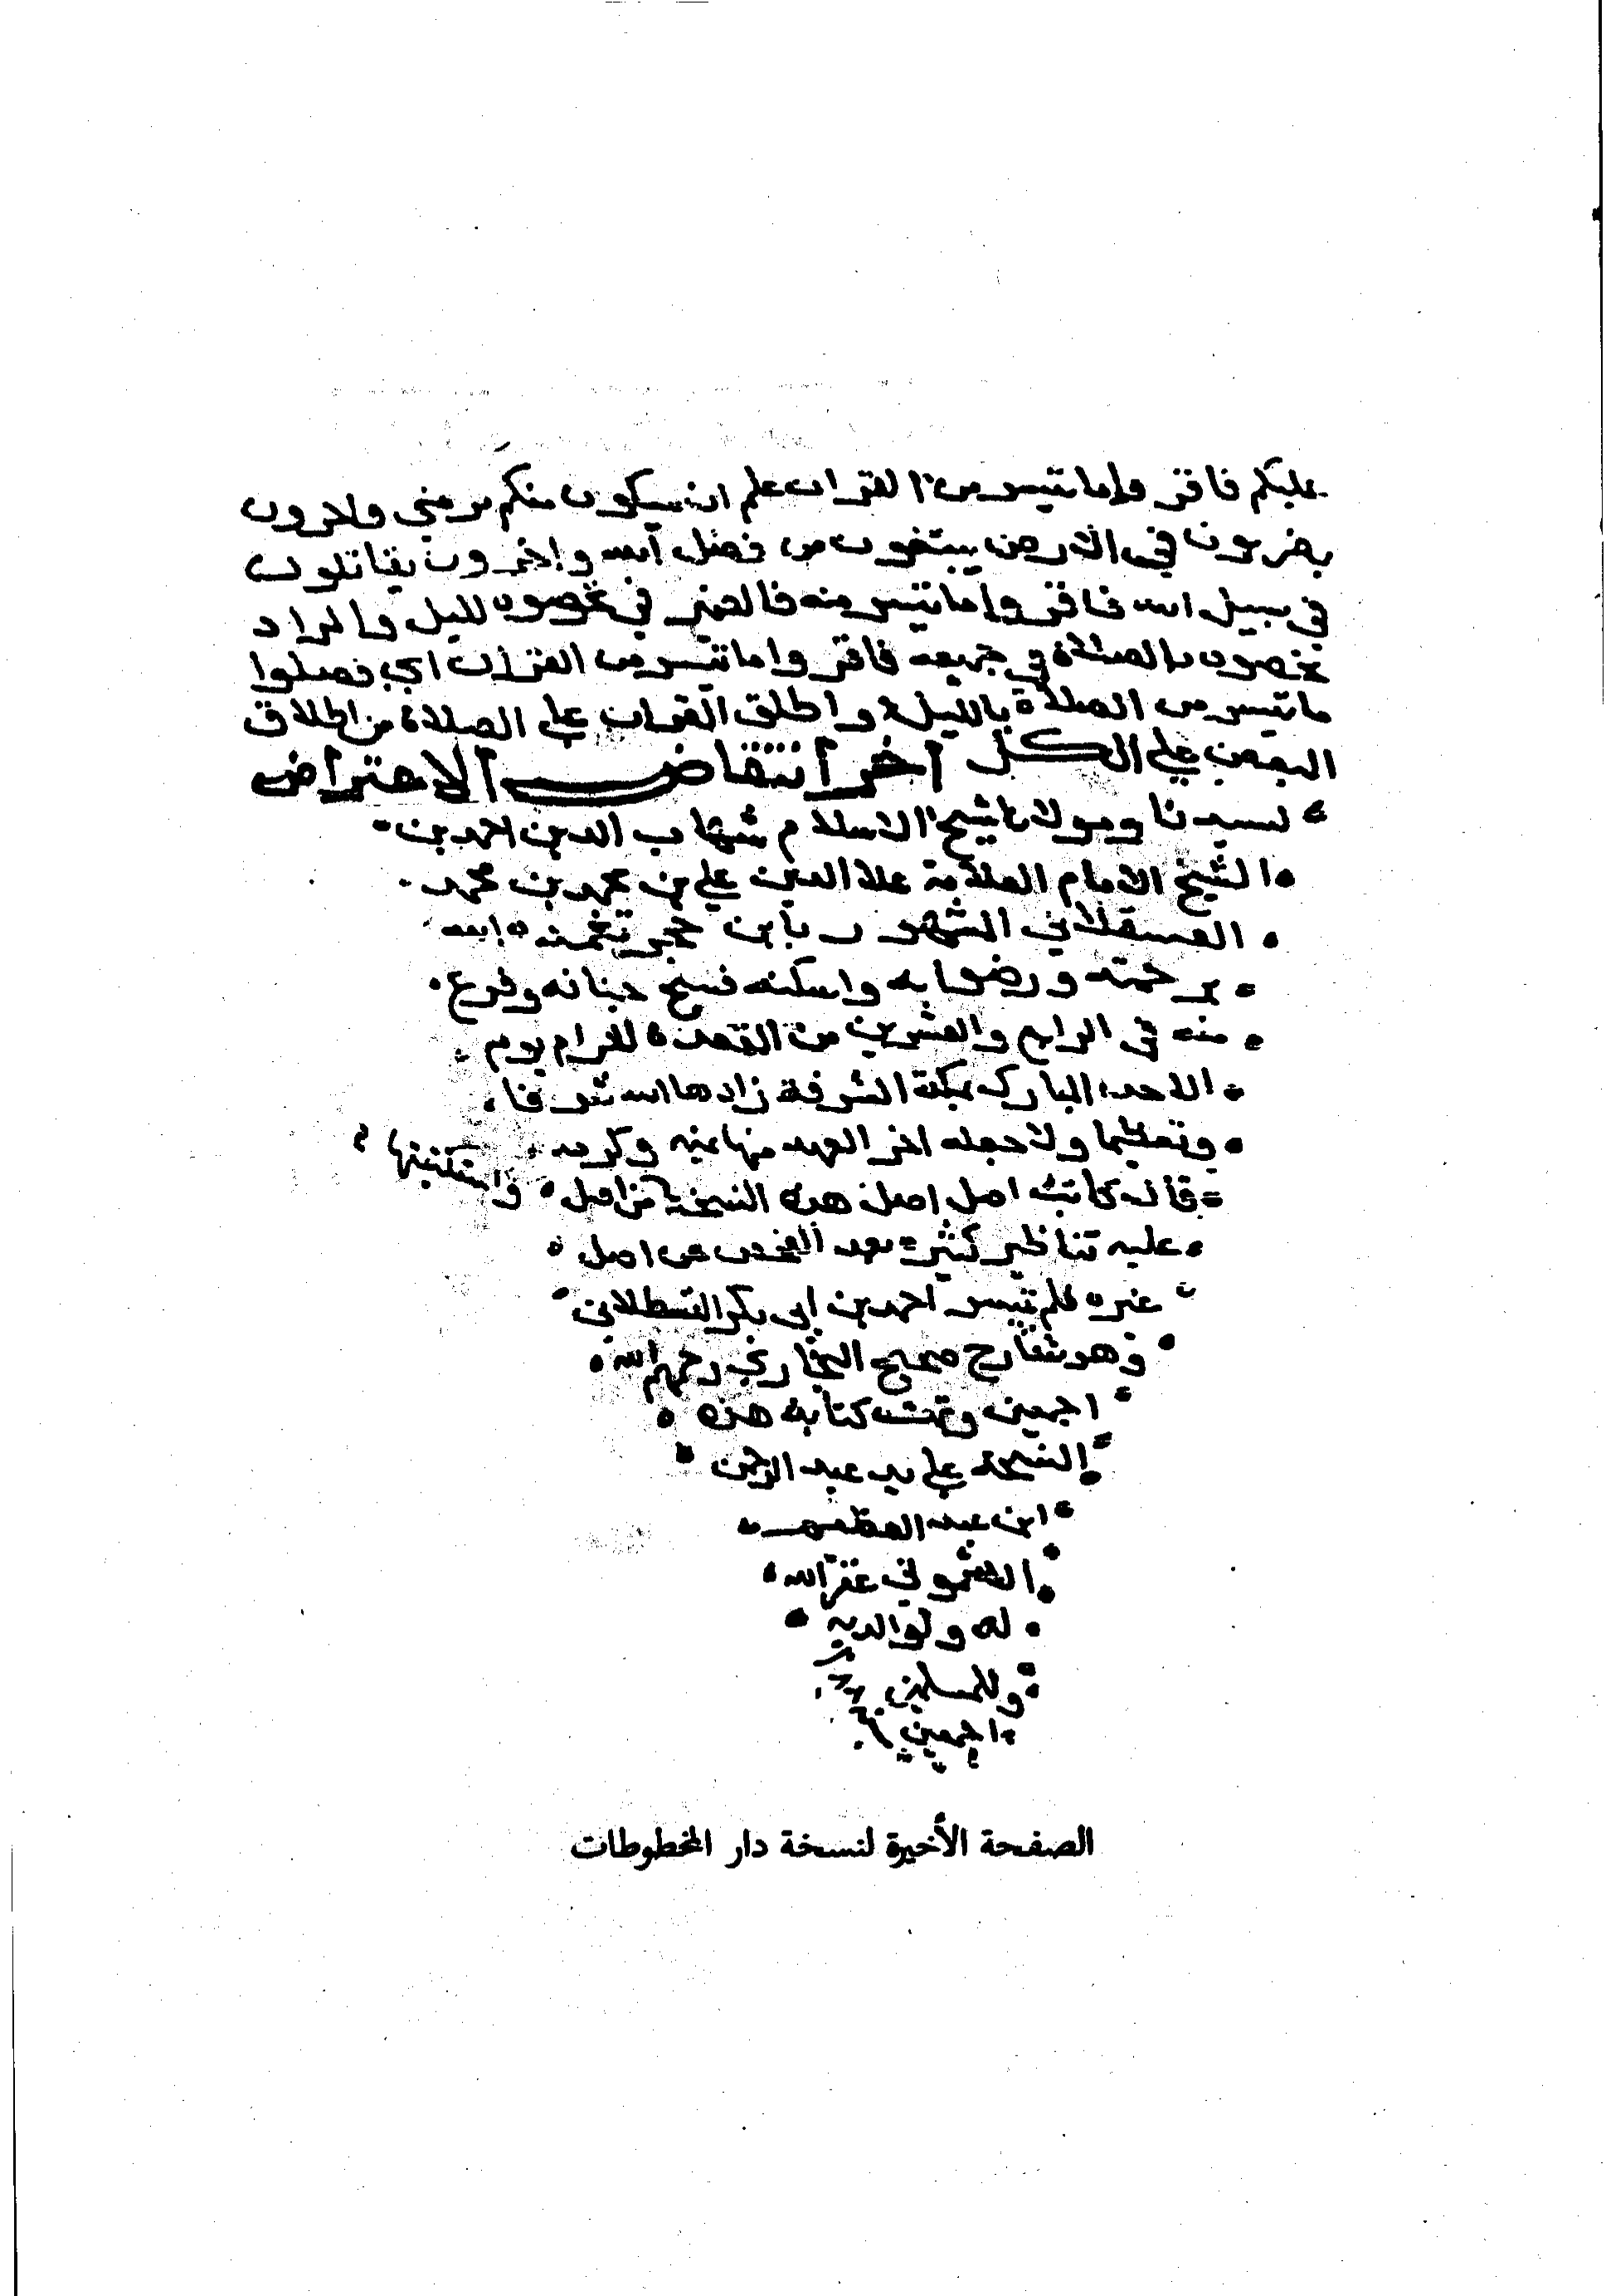 عليكم فاقرؤا ما تيسر من القران علم ان سيكون منكم مرضي واخرون
يضربون في الارض يبتغون من فضل الله واخرون يقاتلون
في سبيل الله فاقرؤا ما تيسر منه فالضمير في تحصوه لليل والمراد
تحصوه بالصلاة في جميعه فاقرؤا ما تيسر من القران اي فصلوا
ما تيسر من الصلاة بالليل واطلق القران علي الصلاة من اطلاق
البعض علي الكل اخر انتقاض الاعتراض
لسيدنا ومولانا شيخ الاسلام شهاب الدين احمد بن
الشيخ الامام العلامة علا الدين علي بن محمد بن محمد
العسقلاني الشهير بابن حجر تغمده الله
برحمته ورضوانه واسكنه فسيح جنانه وفرغ
منه في الرابع والعشرين من القعدة الحرام يوم
الاحد المبارك بمكة المشرفة زادها الله شرفا
وتعظيما ولا جعله اخر العهد منها بمنه وكرمه
قال كاتب اصل اصل هذه النسخة من اصل
عليه تناظير كثيرة بعد الفحص عن اصل
غيره فلم تيسر احمد بن ابي بكر القسطلاني
وهو شارح صحيح البخاري رحمهم الله
اجمعين وتمت كتابة هذه
النسخة علي يد عبد الرحمن
ابن عبد العظيم
غفر الله
له ولوالديه
وللمسلمين
اجمعين
الصفحة الأخيرة لنسخة دار المخطوطات